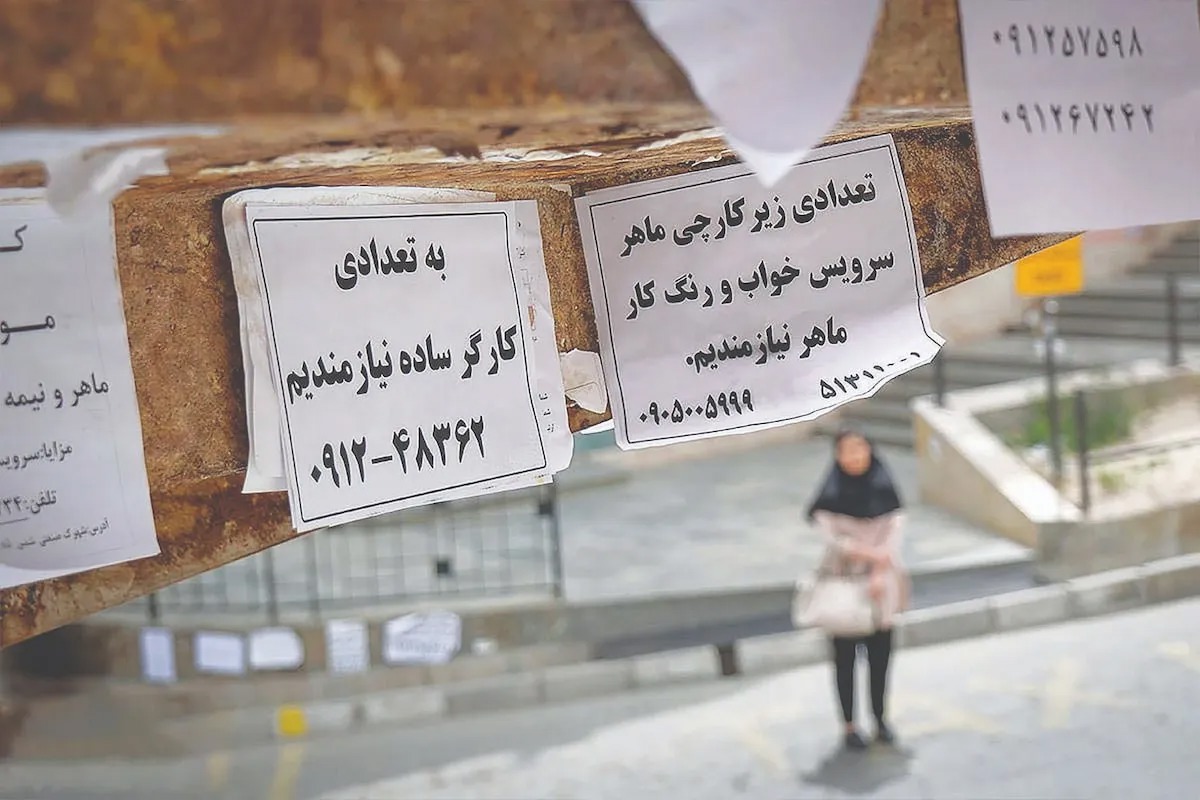 ۰۹۱۲۵۷۵۹۸
۰۹۱۲۶۷۲۴۲
تعدادی زیر کارچی ماهر
سرویس خواب و رنگ کار
ماهر نیازمندیم.
۵۱۳۱۱۰۰۱
۰۹۰۵۰۰۵۹۹۹
به تعدادی
کارگر ساده نیازمندیم
۰۹۱۲-۴۸۳۶۲
ماهر و نیمه
مزایا:سرویس
تلفن:۷۳۴
آدرس:شهرک صنعتی شمس